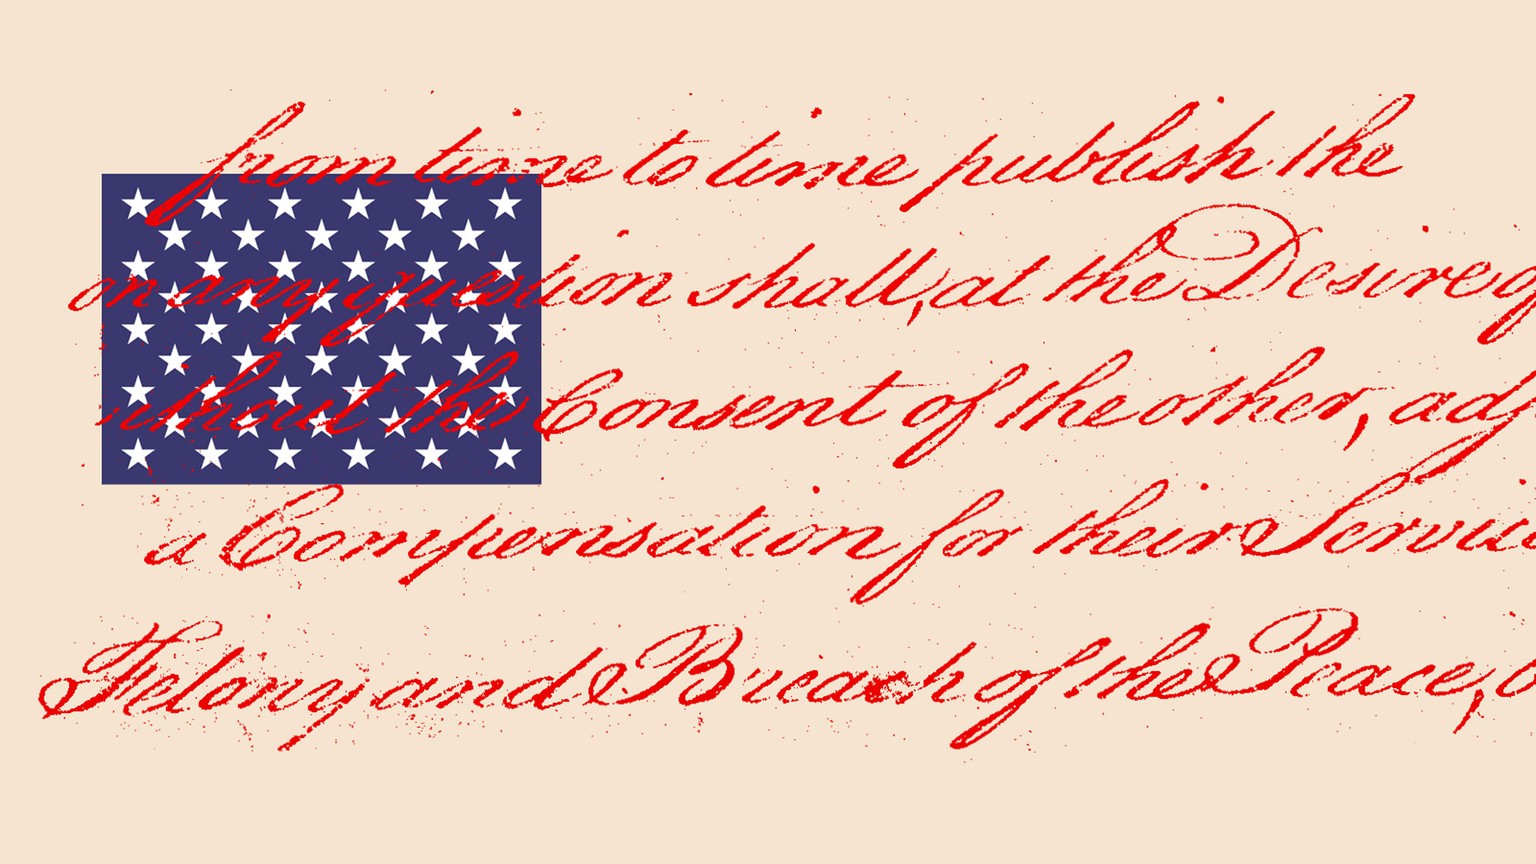 from time to time publish the
on any question shall, at the Desire
without the Consent of the other,
a Compensation for their
Felony and Breach of the Peace,